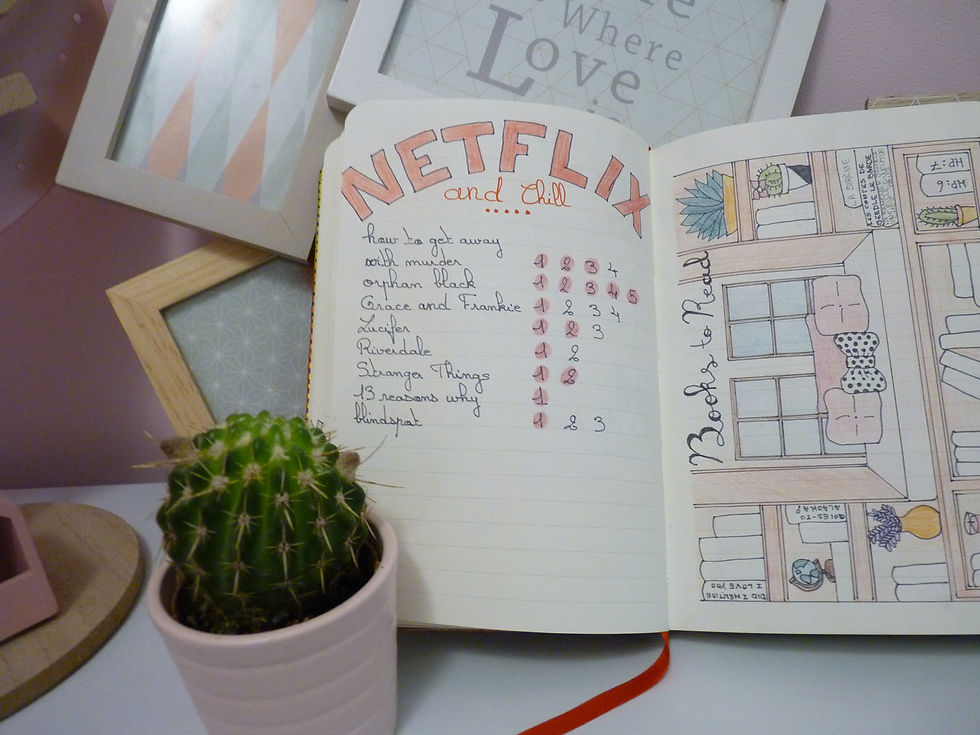 Where
Love
NETFLIX
and Chill
how to get away
with murder 1 2 3 4
orphan black 1 2 3 4 5
Grace and Frankie 1 2 3 4
Lucifer 1 2 3
Riverdale 1 2
Stranger Things 1 2
13 reasons why 1
blindspot 1 2 3
Books to Read
LA SIRÈNE
LES CONTES DE
BEEDLE LE BARDE
HP:7
HP:6
QUI ES-TU
ALASKA?
DID I MENTION
I LOVE YOU